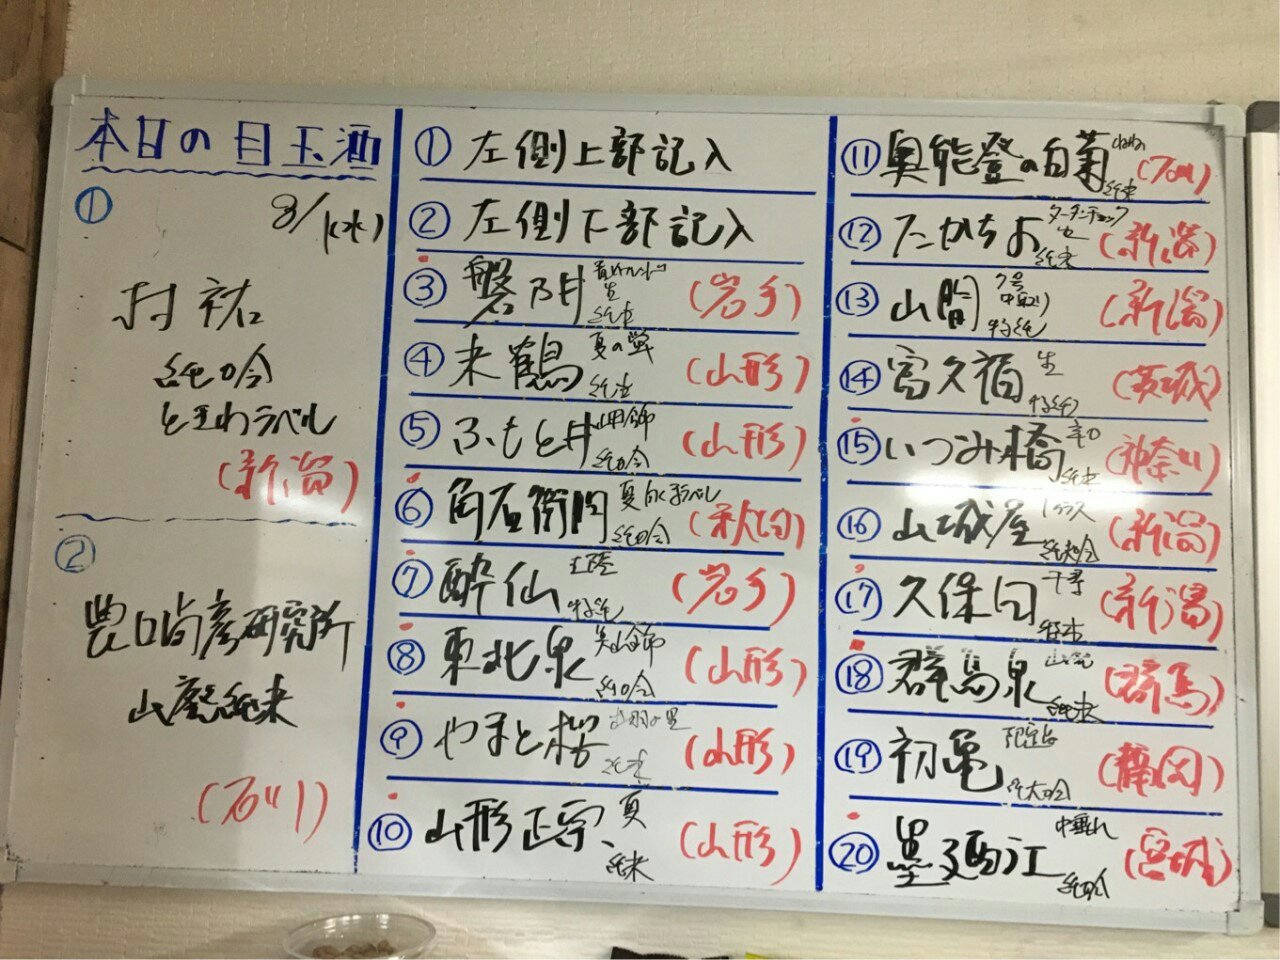 本日の目玉酒
① 8/1(水)
村祐
純吟
ときわラベル
(新潟)
②
農口尚彦研究所
山廃純米
(石川)
① 左側上部記入
② 左側下部記入
③ 磐乃井 生 純米 (岩手)
④ 来鶴 夏の 純米 (山形)
⑤ ふもと井 純吟 (山形)
⑥ 角右衛門 夏 ラベル 純吟 (秋田)
⑦ 酔仙 特純 (岩手)
⑧ 東北泉 純吟 (山形)
⑨ やまと桜 出羽の里 純米 (山形)
⑩ 山形正宗、夏 純米 (山形)
⑪ 奥能登の白菊 純米 (石川)
⑫ たかちよ ターターンチェック 純米 (新潟)
⑬ 山間 7号 中取り 特純 (新潟)
⑭ 富久福 生 特純 (茨城)
⑮ いづみ橋 辛口 純米 (神奈川)
⑯ 山城屋 純米吟 (新潟)
⑰ 久保田 千寿 特本 (新潟)
⑱ 群馬泉 山廃 純米 (群馬)
⑲ 初亀 純大吟 (静岡)
⑳ 墨廼江 中垂れ 純吟 (宮城)